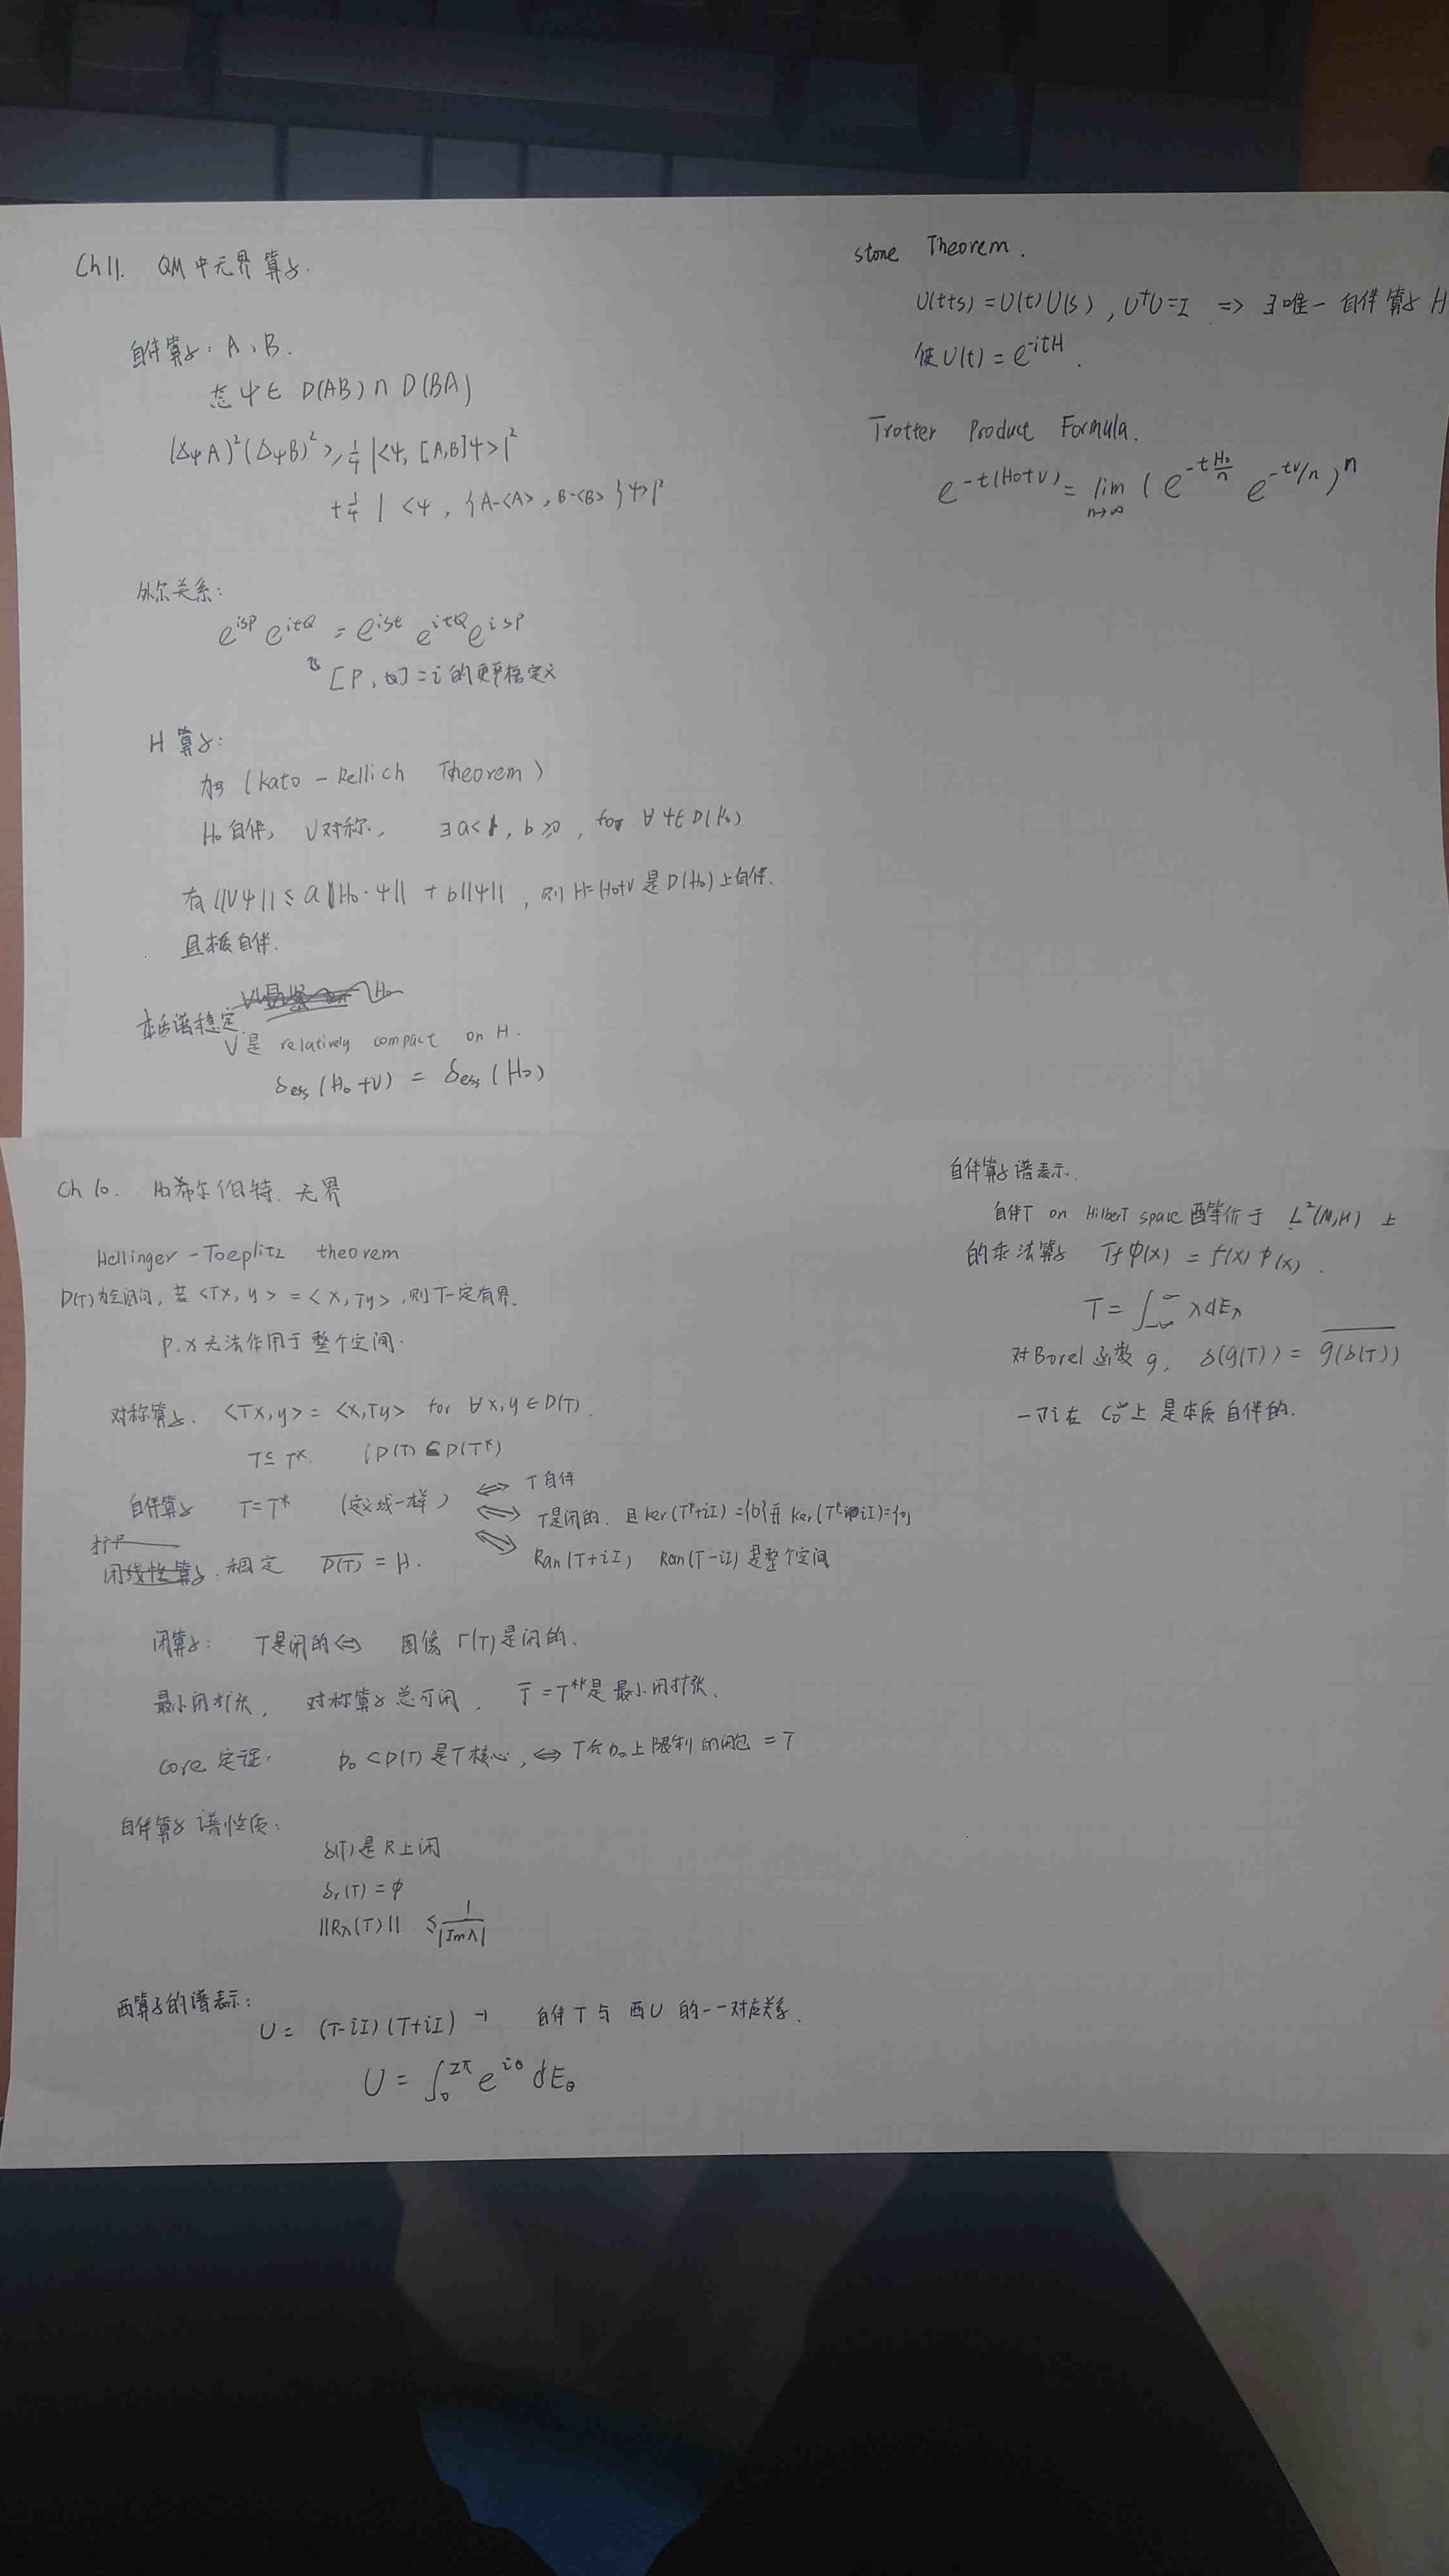 Ch 11. QM 中无界算子.
自伴算子: A、B.
态 ψ ∈ D(AB) ∩ D(BA)
(Δψ A)² (Δψ B)² ≥ 1/4 |<ψ, [A,B]ψ>|²
+ 1/4 | <ψ, {A-<A>, B-<B>}ψ>|²
外尔关系:
e^{isP} e^{itQ} = e^{ist} e^{itQ} e^{isP}
[P, Q] = i 的更严格定义
H 算子:
(Kato - Rellich Theorem)
H₀ 自伴, V 对称, ∃ a<1, b≥0, for ∀ ψ ∈ D(H₀)
有 ||Vψ|| ≤ a ||H₀·ψ|| + b||ψ||, 则 H=H₀+V 是 D(H₀) 上自伴.
且本质自伴.
本质谱稳定.
V 是 relatively compact on H.
δess (H₀+V) = δess (H₀)
stone Theorem.
U(t+s) = U(t)U(s), U†U=I => ∃ 唯一自伴算子 H
使 U(t) = e^{-itH}.
Trotter Product Formula.
e^{-t(H₀+V)} = lim n→∞ ( e^{-tH₀/n} e^{-tV/n} )^n
Ch 10. 希尔伯特. 无界
Hellinger - Toeplitz theorem
D(T) 为空间, 若 <Tx, y> = <x, Ty>, 则 T 一定有界.
P, X 无法作用于整个空间.
对称算子. <Tx, y> = <x, Ty> for ∀ x, y ∈ D(T).
T ⊆ T*. (D(T) ⊆ D(T*)
自伴算子 T = T* (定义域一样) ⇔ T 自伴
⇔ T是闭的. 且 ker(T*+iI) = {0} 并 ker(T*-iI)={0}
⇔ Ran(T+iI) Ran(T-iI) 是整个空间
稠定 D(T)‾ = H.
闭算子: T是闭的 ⇔ 图像 Γ(T) 是闭的.
最小闭扩张, 对称算子总可闭. T̄ = T** 是最小闭扩张.
Core 定理: D₀ ⊂ D(T) 是 T 核心, ⇔ T 在 D₀ 上限制的闭包 = T
自伴算子谱性质:
δ(T) 是 R 上闭
δr(T) = φ
||Rλ(T)|| ≤ 1/|Imλ|
酉算子的谱表示:
U = (T-iI)(T+iI)⁻¹ 自伴 T 与 酉 U 的一一对应关系.
U = ∫₀^{2π} e^{iθ} dEθ
自伴算子谱表示.
自伴T on HilberT space 酉等价于 L²(M,μ) 上
的乘法算子 Tf φ(x) = f(x) φ(x).
T = ∫_{-∞}^{∞} λdEλ
对Borel 函数 g, δ(g(T)) = g(δ(T))‾
-∇i 在 C₀^∞ 上是本质自伴的.